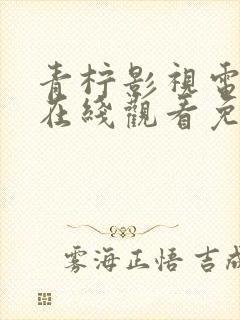 青柠影視電
在綫觀看免
雾海正悟 吉成